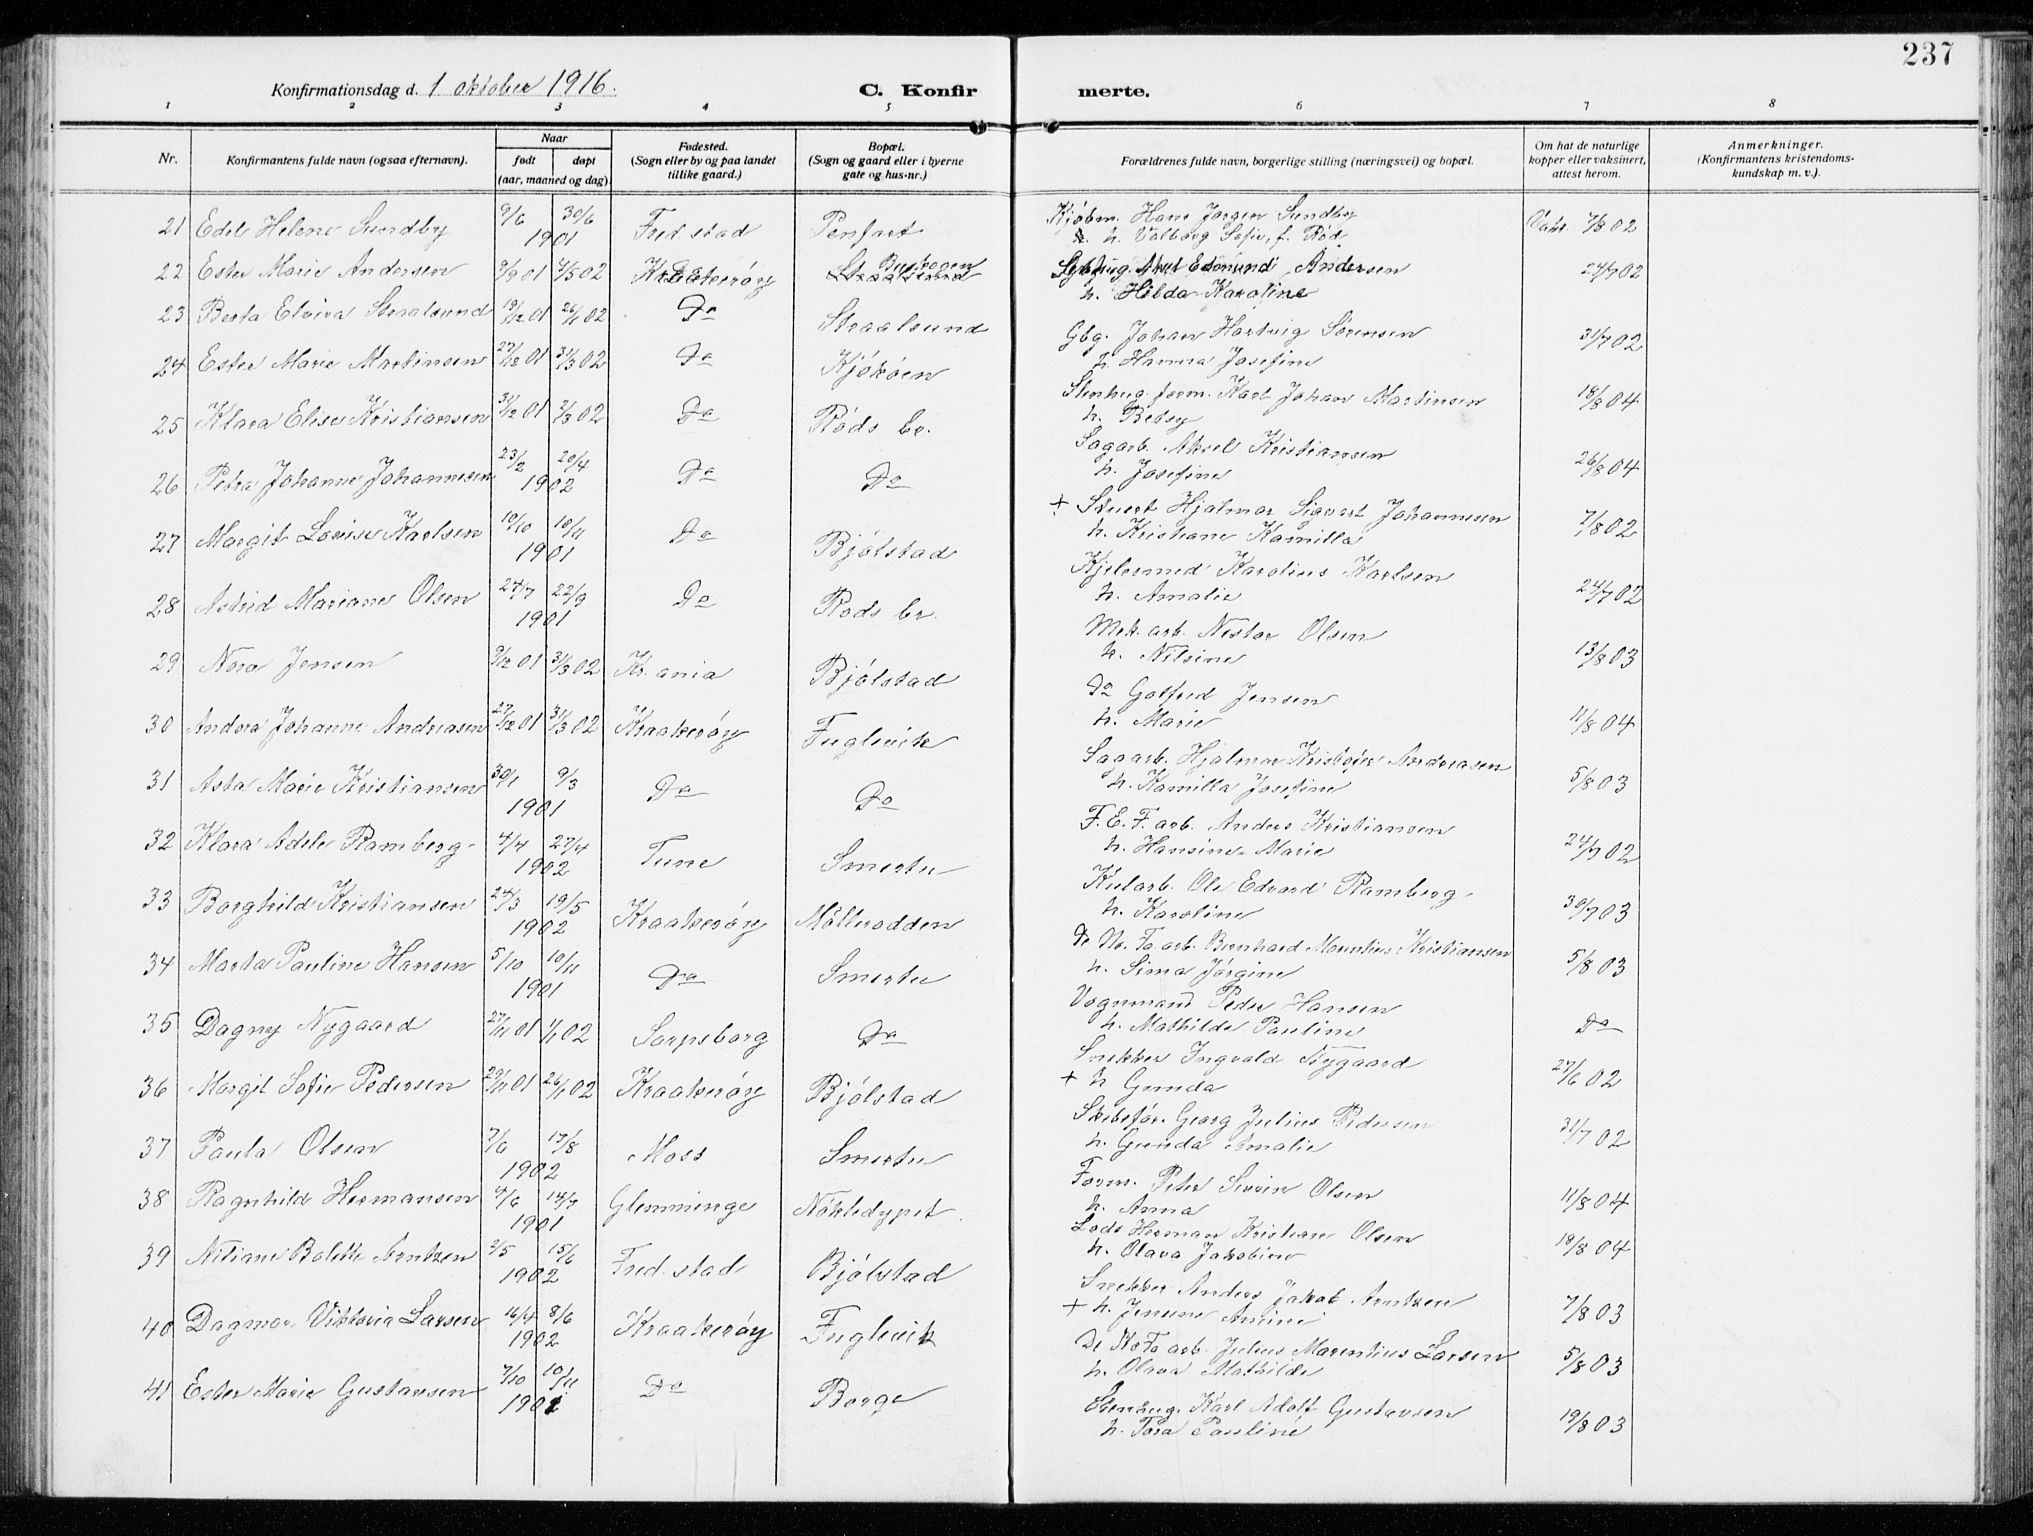 237
Konfirmationsdag d. 1 oktober 1916.
C. Konfirmerte.
1 2 3 4 5 6 7 8
Nr.
Konfirmantens fulde navn (ogsaa efternavn).
Naar
født døpt
(aar, maaned og dag)
Fødested.
(Sogn eller by og paa landet
tillike gaard.)
Bopæl.
(Sogn og gaard eller i byerne
gate og hus-nr.)
Forældrenes fulde navn, borgerlige stilling (næringsvei) og bopæl.
Om hat de naturlige
kopper eller vaksinert,
attest herom.
Anmerkninger.
(Konfirmantens kristendoms-
kundskap m. v.).
21 Edel Helene Sundby 9/6 30/6 1901 Fred.stad Kjøbm. Hans Jørgen Sundby 7/8 02
h. Valborg Sofie, f. Rød
22 Ester Marie Andersen 9/9 01 4/5 02 Kraakerøy Edmund Andersen 24/7 02
h. Hilda Karoline
23 Berta Elvira Straalsund 19/12 01 26/1 02 Do Straalsund Gbg. Johan Hartvig Sørensen 31/7 02
h. Hanna Josefine
24 Ester Marie Martinsen 27/12 01 31/3 02 Do Kjøkøen Stenhug. form. Karl Johan Martinsen 18/8 04
h. Betsy
25 Klara Elise Kristiansen 31/12 01 2/3 02 Do Røds br. Sagarb. Aksel Kristiansen 26/8 04
h. Josefine
26 Petra Johanne Johannesen 23/2 20/4 1902 Do Do + Stuert Hjalmar Sigvart Johannesen 7/8 02
h. Kristiane Kamilla
27 Margit Lovise Karlsen 10/10 10/11 1901 Do Bjølstad Kjelesmed Karolius Karlsen 24/7 02
h. Amalie
28 Astrid Mariane Olsen 24/7 22/9 1901 Do Røds br. Mek. arb. Nestor Olsen 13/8 03
h. Nilsine
29 Nora Jensen 9/12 01 31/3 02 Kr.ania Bjølstad Do Gotfred Jensen 11/8 04
h. Marie
30 Andora Johanne Andreasen 27/12 01 31/3 02 Kraakerøy Fuglevik Sagarb. Hjalmar Andreasen 5/8 03
h. Kamilla Josefine
31 Asta Marie Kristiansen 30/1 9/3 1901 Do Do F.E.F. arb. Anders Kristiansen 24/7 02
h. Hansine Marie
32 Klara Adele Ramberg 4/4 27/4 1902 Tune Smertu Kularb. Ole Edvard Ramberg 30/7 03
h. Karoline
33 Borghild Kristiansen 24/3 19/5 1902 Kraakerøy Mölleradden De No. Fa arb. Bernhard Marentius Kristiansen 5/8 03
h. Sima Jørgine
34 Marta Pauline Hansen 5/10 10/11 1901 Do Smertu Vognmand Peder Hansen Do
h. Mathilde Pauline
35 Dagny Nygaard 27/11 01 1/1 02 Sarpsborg Do Snekker Ingvald Nygaard 27/6 02
+ h Gunda
36 Margit Sofie Pedersen 29/11 01 26/1 02 Kraakerøy Bjølstad Skibsfør. Georg Julius Pedersen 21/7 02
h. Gunda Amalie
37 Paula Olsen 7/6 17/8 1902 Moss Smertu Form. Peter Olsen 11/8 04
h. Anna
38 Ragnhild Hermansen 4/6 14/7 1901 Glemminge Nøkledypet Lods Herman Kristian Olsen 18/8 04
h. Olava Jakobine
39 Niliane Bolette Arntzen 2/5 15/6 1902 Fred.stad Bjølstad Snekker Anders Jakob Arntzen 7/8 03
+ h.
40 Dagmar Viktoria Larsen 16/4 8/6 1902 Kraakerøy Fuglevik De No Fa arb. Julius Marentius Larsen 5/8 03
h. Olava Mathilde
41 Ester Marie Gustavsen 7/10 10/11 1901 Do Borge Stenhug. Karl Adolf Gustavsen 19/8 03
h. Tora Pauline